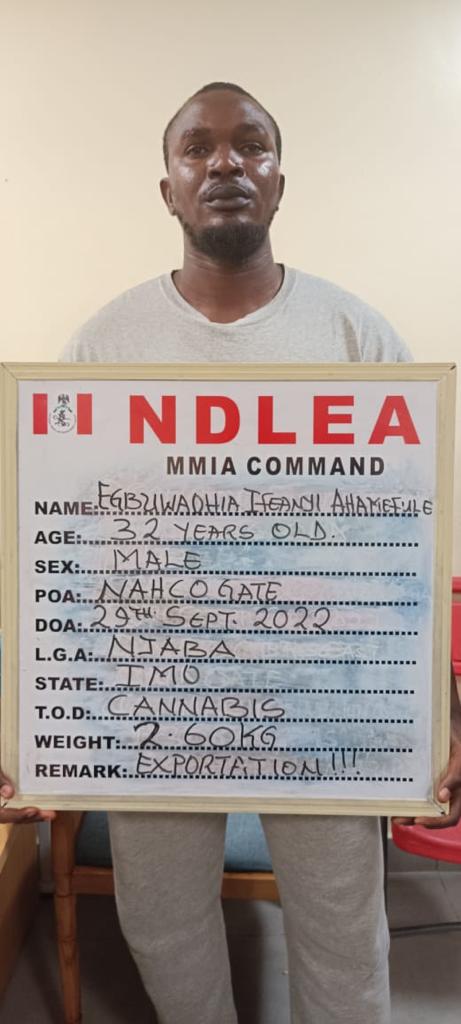 NDLEA
MMIA COMMAND
NAME: EGBUWAOHIA IFEANYI AHAMEFULE
AGE: 32 YEARS OLD.
SEX: MALE
POA: NAHCO GATE
DOA: 29TH SEPT. 2022
L.G.A: NJABA
STATE: IMO
T.O.D: CANNABIS
WEIGHT: 2.60KG
REMARK: EXPORTATION!!!